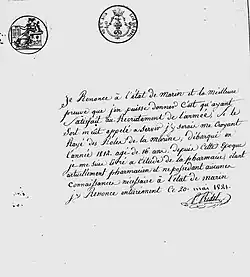 Je Renonce à l'état de marin et la meilleure
preuve que j'en puisse donner c'est qu'ayant
satisfait au Recrutement de l'armée, si le
Sort m'eut appelé a servir j'y serais me Croyant
Rayé des Roles de la marine, débarqué en
l'année 1818. agé de 16 ans. depuis cette époque
je me suis livré à l'étude de la pharmacie, étant
actuellement pharmacien et ne possedant aucunes
connaissances nécessaire à l'état de marin
j'y Renonce entièrement ce 20. mai 1821.